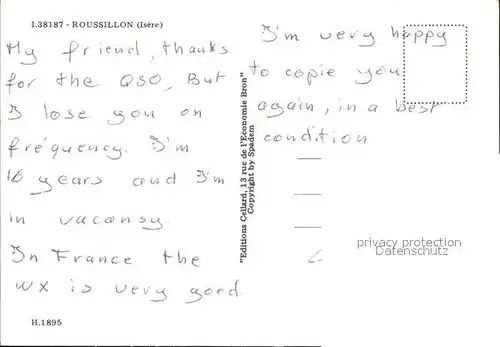 I.38187 - ROUSSILLON (Isère)
My friend, thanks
for the QSO, But
I lose you on
fréquency. I'm
16 years and I'm
in vacansy
In France the
wx is very good.
H.1895
"Editions Cellard, 13 rue de l'Economie Bron"
Copyright by Spadem
I'm very happy
to copie you
again, in a best
condition
privacy protection
Datenschutz